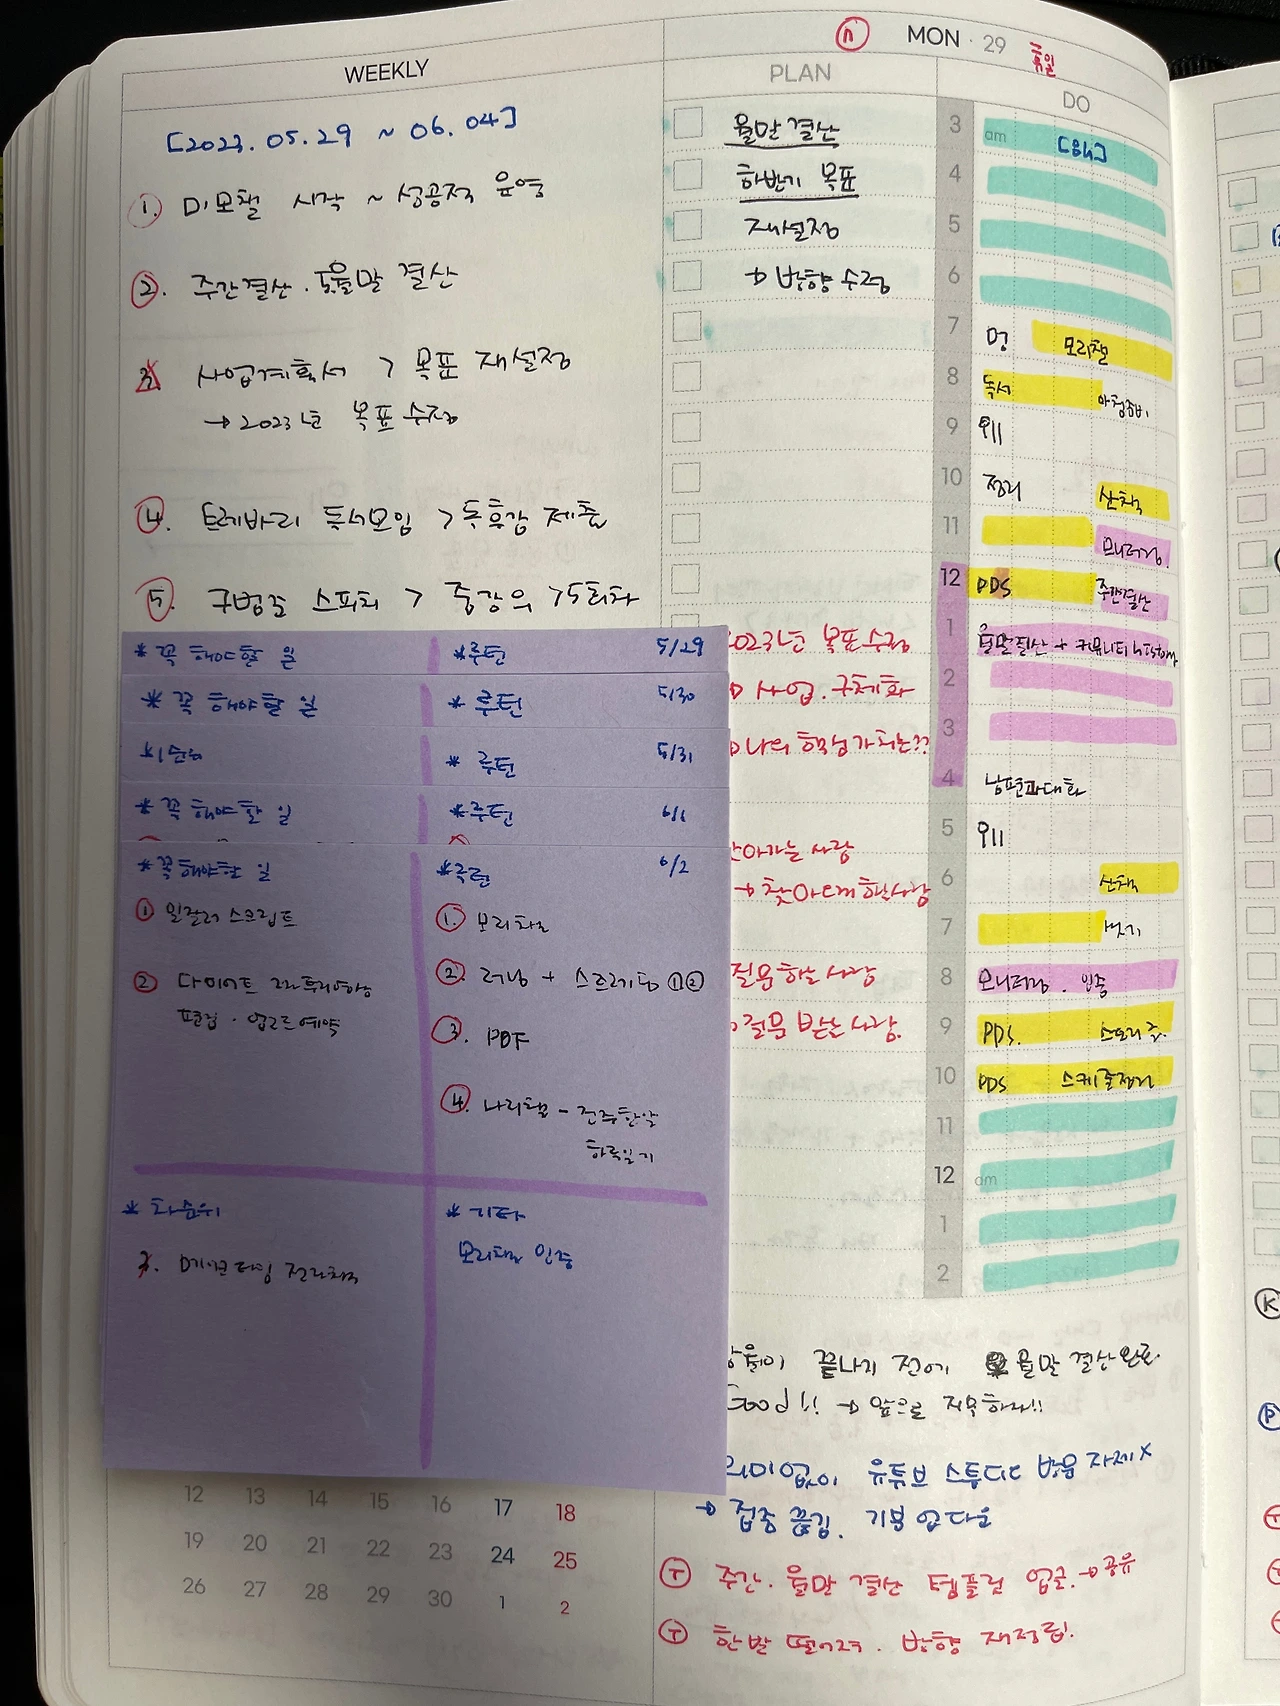 WEEKLY
[2023.05.29 ~ 06.04]
1. 미모챌 시작 ~ 성공적 운영
2. 주간결산 . 월말 결산
3. 사업계획서 > 목표 재설정
→ 2023년 목표 수정
4. 트레바리 독서모임 > 독후감 제출
5. 구범준 스피치 > 중강의 > 5회차
* 꼭 해야할 일 * 루틴 5/29
* 꼭 해야할 일 * 루틴 5/30
* 루틴 5/31
* 꼭 해야할 일 * 루틴 6/1
* 꼭 해야할 일 * 루틴 6/2
① 일잘러 스크립트
② 다이어트
편집 . 업로드 예약
1. 모리챌
2. 러닝 + 스트레칭 ①②
3. PDF
4. 나리챌 -
하루일기
* 차순위
2.
* 기타
모리챌 인증
12 13 14 15 16 17 18
19 20 21 22 23 24 25
26 27 28 29 30 1 2
MON · 29 휴일
PLAN
월말 결산
하반기 목표
재설정
→ 방향 수정
2023년 목표 수정
사업 . 구체화
나의 핵심가치는??
찾아가는 사람
→ 찾아오게 하는 사람
질문 하는 사람
질문 받는 사람.
DO
3 am [8H]
4
5
6
7 명 모리챌
8 독서 아침준비
9 위
10 정리 산책
11 모니터링.
12 PDS 주간결산
1 월말결산 + 커뮤니티 history
2
3
4 남편과 대화
5 위
6 산책
7 씻기
8 모니터링 . 인증
9 PDS.
10 PDS 스케줄정리
11
12 am
1
2
끝나기 전에 월말 결산 완료.
Good!! → 앞으로 지속하자!!
의미없이 유튜브 스튜디오 방문 자제 x
→ 집중 끊김. 기분 업다운
Ⓣ 주간 . 월말 결산 템플릿 업글. → 공유
Ⓣ 한발 떨어져 . 방향 재정립!
K
P